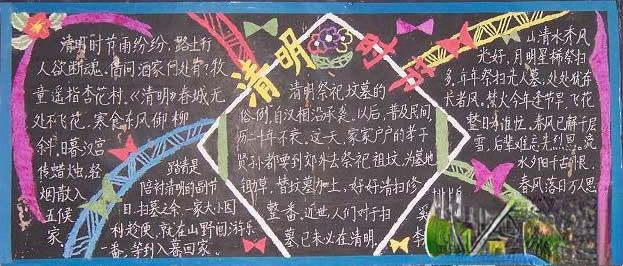 清明时节
清明时节雨纷纷，路上行
人欲断魂。借问酒家何处有？牧
童遥指杏花村。《清明》春城无
处不飞花，寒食东风御柳
斜，日暮汉宫
传蜡烛，轻
烟散入
五侯
家
踏青是
陪衬清明的副节
日，扫墓之余，一家大小因
利趁便，就在山野间游乐
一番，等到入暮回家。
清明祭祀坟墓的
俗例，自汉相沿承袭，以后，普及民间，
历二千年不衰。这一天，家家户户的孝子
贤孙都要到郊外去祭祀祖坟，为墓地
锄草，替坟墓加土，好好清扫修
整一番，近世人们对于扫
墓，已未必在清明。
山清水秀风
光好，月明星稀祭扫
多，年年祭扫先人墓，处处犹存
长者风，禁火今年逢节早，飞花
整日
春风已解千层
雪，后辈难忘先烈恩，流
水夕阳千古恨，
春风落日万人思
排版